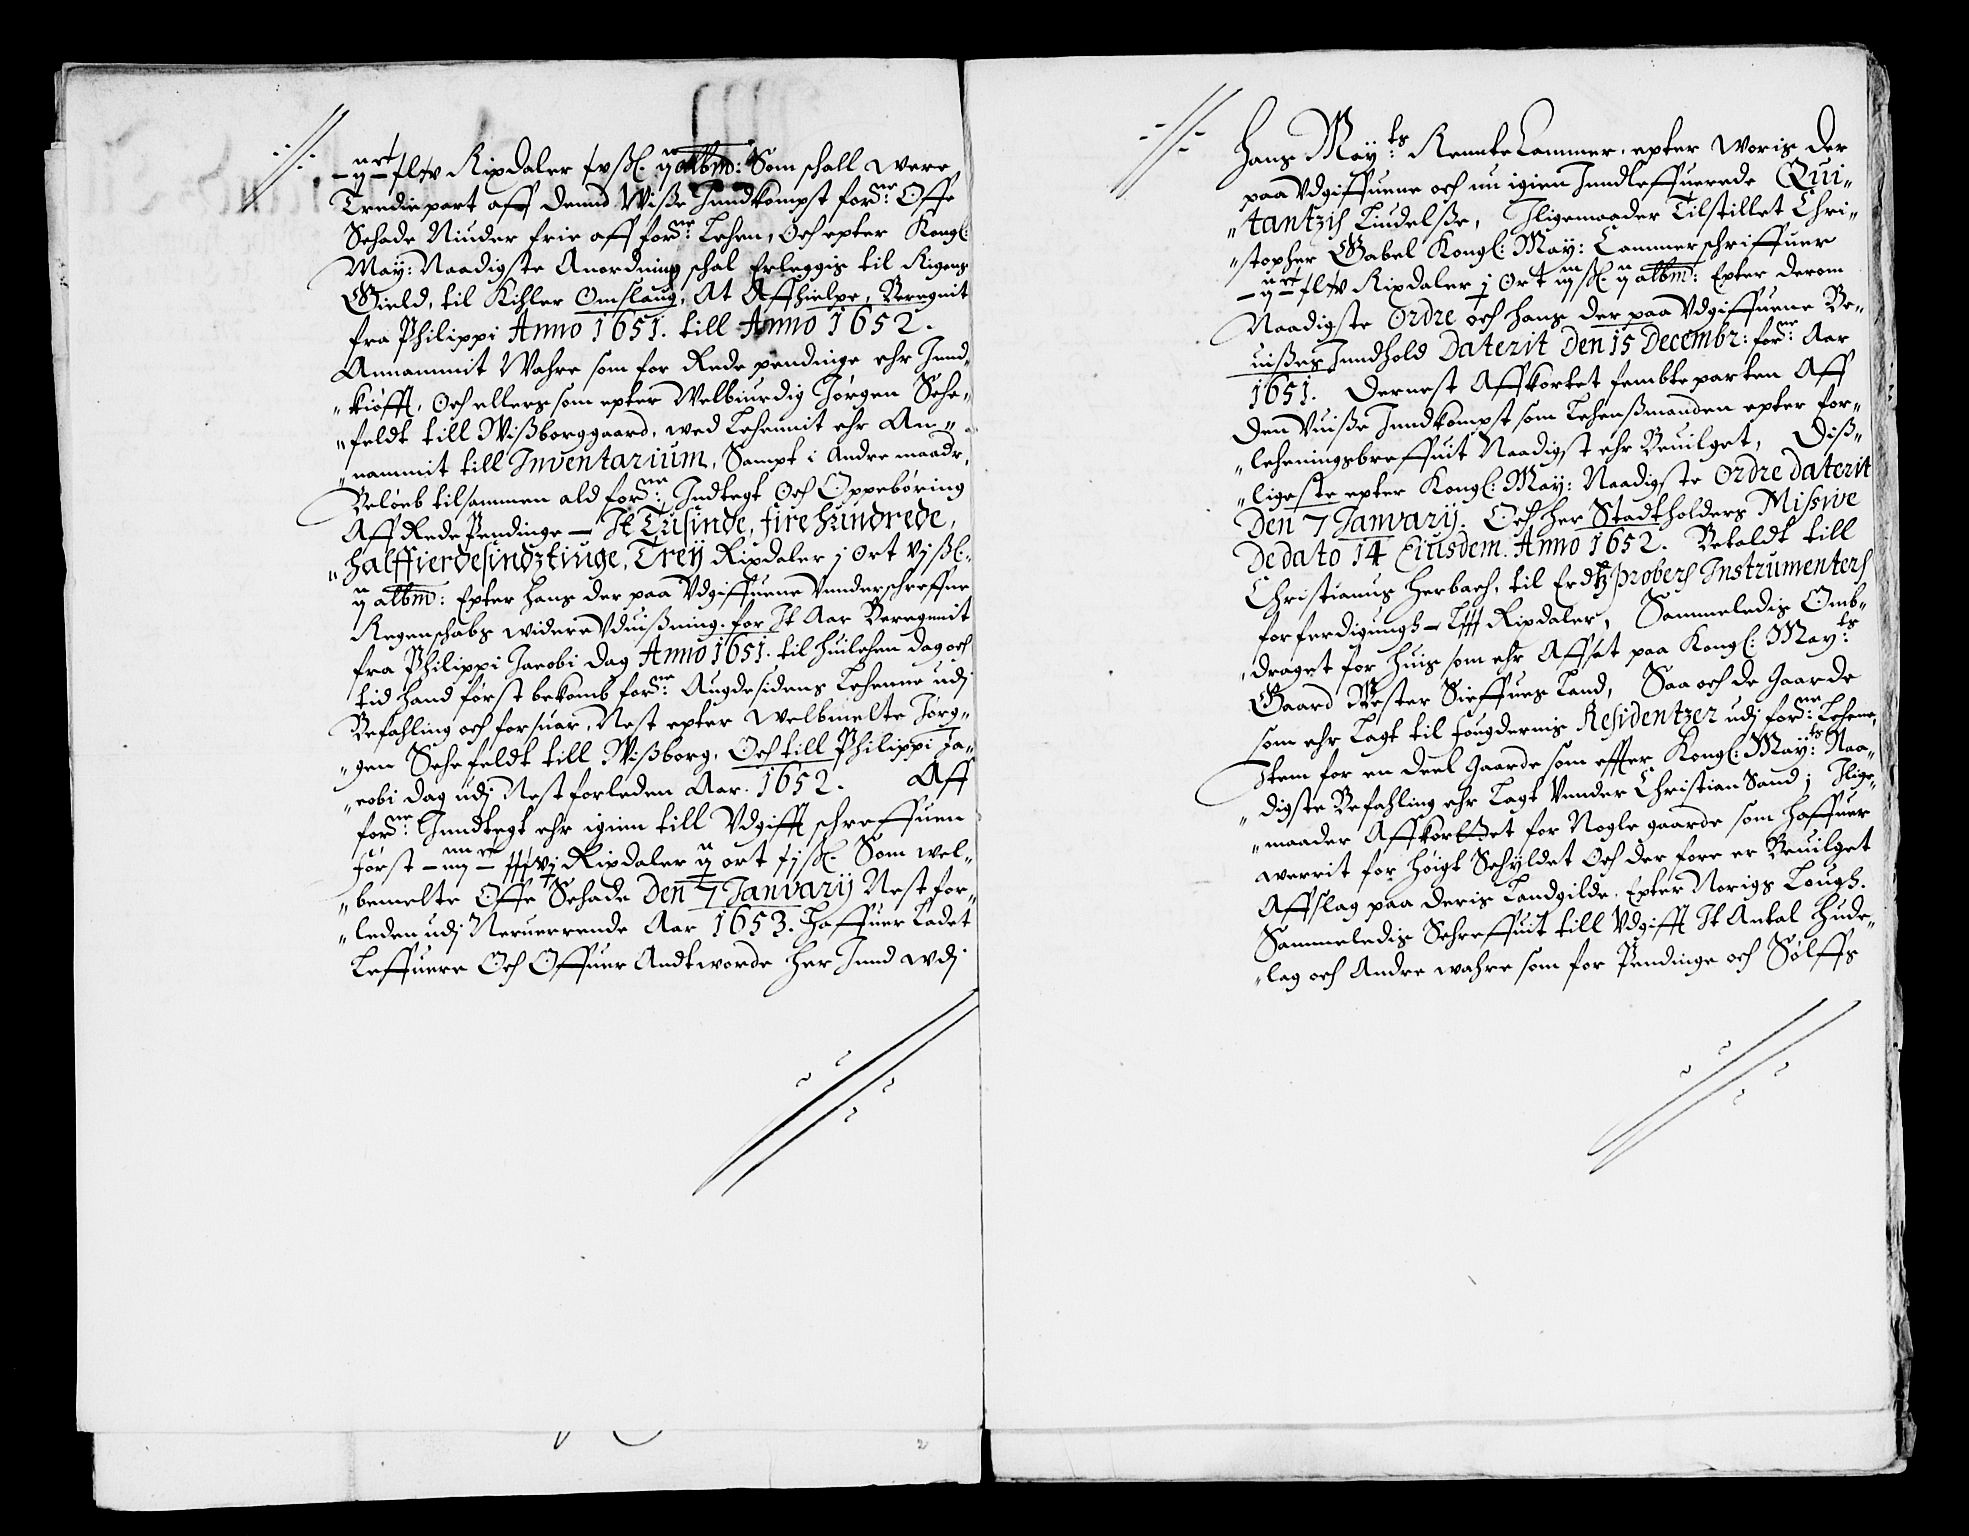 Rixdaler ß. ij albm: Som schall were
Trediepart aff denné Wiße Jnndkompst fordne: Offe
Schade Niuder frie aff fordne: Lehen, Och epter Kongl:
May: Naadigste Anordning schal Erleggis til Rigens
Gield, til Kihler Omslaug, At Affhielpe, Beregnit
fra Philippi Anno 1651. till Anno 1652.
Annammit Wahre som for Rede pendinge ehr Jnnd-
"kiöfft, Och ellers som epter Welbiurdig Jörgen Sehe-
"feldt till Wißborggaard, wed Lehennit ehr An-
"nammit till Inventarium, Sampt i Andre maadr,
Belöeb tilsammen ald fordne: Jndtegt Och Oppeböring
Aff Rede Pendinge - It Tusinde, fire hundrede,
"halffierdesindztiuge, Treij Rixdaler j Ort vjß.
ij albm: Epter hans der paa Vdgiffuene Vnnderschreffne
Regenschabs widere Vduißning. for It Aar Beregnnit
fra Philippi Jacobi dag Anno 1651. til huilchen dag och
tid hand först bekomb fordne: Augdesidens Lehenne udj
Befahling och forsuar, Nest epter Welbmelte Jörg-
"gen Sehefeldt till Wißborg, Och till Philippi Ja-
"cobi dag udj Nestforleden Aar. 1652. Aff
fordne: Jnndtegt ehr igien till Vdgifft schreffuen
först Rixdaler ij ort ß. Som wel-
"bemelte Offe Schade den 7 Janvarij Nest for-
"leden udj Neruerrende Aar 1653. haffuer Ladet
Leffuere Och Offuer Andtworde her Jnnd wdj
Hans Mayts: RennteCammer, epter woris der
paa Vdgiffuene och nu igien Jnndleffuerede Qui-
"tantzis Liudelße, Jligemaader Tilstillet Chri-
"stopher Gabel Kongl: May: Cammerschriffuer
Rixdaler j Ort ß. ij albm: Epter derom
Naadigste Ordre och hans der paa Vdgiffuene Be-
uißes Jnndhold Daterit Den 15 Decembr: fordne: Aar
1651. Dernest Affkortet fembteparten Aff
den Vuiße Jnndkompst som Lehenßmanden epter for-
"leheningsbreffuit Naadigst ehr Beuilget, Diß-
"ligeste epter Kongl: May: Naadigste Ordre daterit
Den 7 Janvarij. Och her Stadtholders Missive
De dato 14 Eiusdem. Anno 1652. Betaldt till
Christianus Herbach, til Erdtz probers Instrumenters
forferdigungh - Rixdaler, Sammeledis Omb-
"draget for huis som ehr Affsat paa Kongl: Mayts:
Gaard Wester Sieffues Land, Saa och de Gaarde
som ehr Lagt til fougdernis Residentzer udj fordne: Lehene,
Item for en deel Gaarde som effter Kongl: Mayts: Naa-
"digste Befahling ehr Lagt Vnnder Christian Sand; Jlige-
"maader Affkortet for Nogle gaarde som haffuer
werrit for höigt Schyldet Och der fore er Beuilget
Affslag paa deris Landgilde, Epter Norigs Lough.
Sammeledis Schreffuit till Vdgifft It Antal Hude-
"lag och Andre wahre som for Pendinge och Sölffs
2